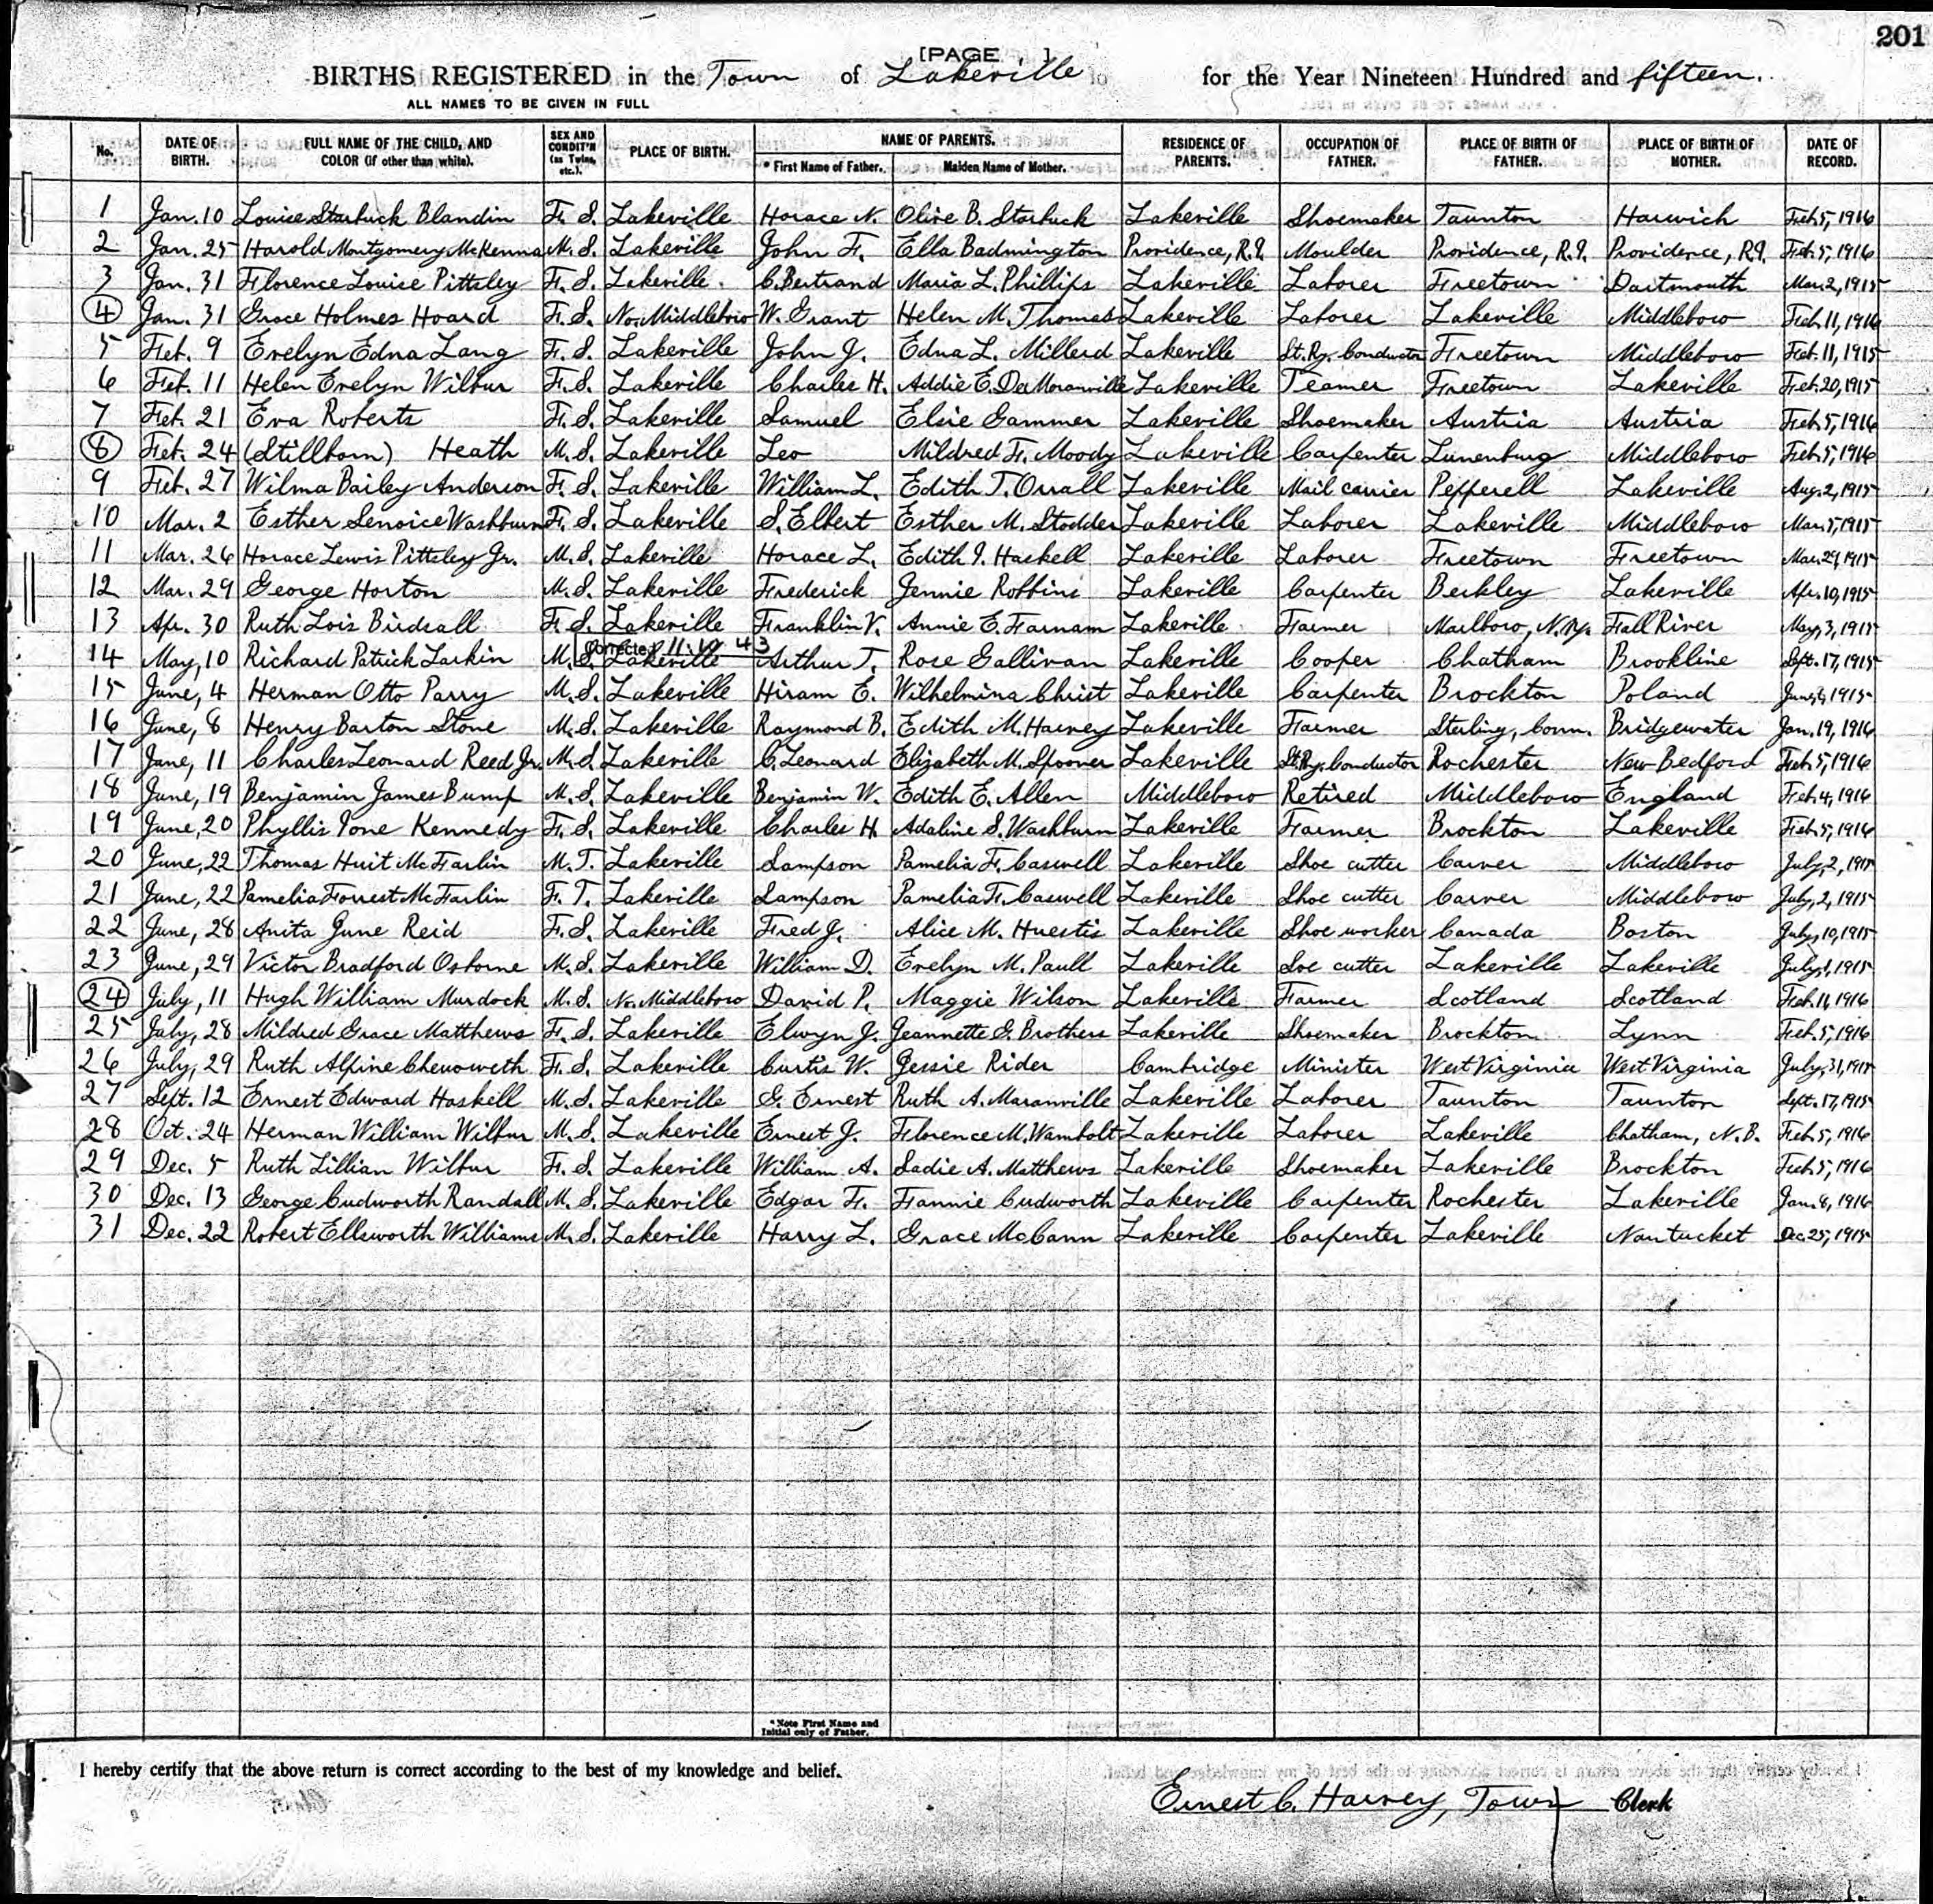 201
[PAGE ]
BIRTHS REGISTERED in the Town of Lakeville for the Year Nineteen Hundred and fifteen.
ALL NAMES TO BE GIVEN IN FULL
No. DATE OF BIRTH. FULL NAME OF THE CHILD, AND COLOR (if other than white). SEX AND CONDIT'N (as Twins, etc.). PLACE OF BIRTH. NAME OF PARENTS. * First Name of Father. Maiden Name of Mother. RESIDENCE OF PARENTS. OCCUPATION OF FATHER. PLACE OF BIRTH OF FATHER. PLACE OF BIRTH OF MOTHER. DATE OF RECORD.
1 Jan. 10 Louise Starbuck Blandin F. S. Lakeville Horace N. Olive B. Starbuck Lakeville Shoemaker Taunton Harwich Feb. 5, 1916
2 Jan. 25 Harold Montgomery McKenna M. S. Lakeville John F. Ella Badmington Providence, R.I. Moulder Providence, R.I. Providence, R.I. Feb. 5, 1916
3 Jan. 31 Florence Louise Pittsley F. S. Lakeville. C. Bertrand Maria L. Phillips Lakeville Laborer Freetown Dartmouth Mar. 2, 1915
4 Jan. 31 Grace Holmes Hoard F. S. No. Middleboro W. Grant Helen M. Thomas Lakeville Laborer Lakeville Middleboro Feb. 11, 1916
5 Feb. 9 Evelyn Edna Lang F. S. Lakeville John J. Edna L. Millerd Lakeville St. Ry. Conductor Freetown Middleboro Feb. 11, 1915
6 Feb. 11 Helen Evelyn Wilbur F. S. Lakeville Charles H. Addie E. DeMoranville Lakeville Teamer Freetown Lakeville Feb. 20, 1915
7 Feb. 21 Eva Roberts F. S. Lakeville Samuel Elsie Gammer Lakeville Shoemaker Austria Austria Feb. 5, 1916
8 Feb. 24 (Stillborn) Heath M. S. Lakeville Leo Mildred F. Moody Lakeville Carpenter Lunenburg Middleboro Feb. 5, 1916
9 Feb. 27 Wilma Bailey Anderson F. S. Lakeville William L. Edith T. Orrall Lakeville Mail carrier Pepperell Lakeville Aug. 2, 1915
10 Mar. 2 Esther Senoice Washburn F. S. Lakeville S. Elbert Esther M. Stodder Lakeville Laborer Lakeville Middleboro Mar. 5, 1915
11 Mar. 26 Horace Lewis Pittsley Jr. M. S. Lakeville Horace L. Edith I. Haskell Lakeville Laborer Freetown Freetown Mar. 29, 1915
12 Mar. 29 George Horton M. S. Lakeville Frederick Jennie Robbins Lakeville Carpenter Berkley Lakeville Apr. 10, 1915
13 Apr. 30 Ruth Lois Birdsall F. S. Lakeville Franklin V. Annie E. Farnam Lakeville Farmer Marlboro, N.Y. Fall River May, 3, 1915
Corrected 11. 10 43
14 May, 10 Richard Patrick Larkin M. S. Lakeville Arthur T. Rose Gallivan Lakeville Cooper Chatham Brookline Sept. 17, 1915
15 June, 4 Herman Otto Parry M. S. Lakeville Hiram E. Wilhelmina Christ Lakeville Carpenter Brockton Poland June, 6, 1915
16 June, 8 Henry Barton Stone M. S. Lakeville Raymond B. Edith M. Harvey Lakeville Farmer Sterling, Conn. Bridgewater Jan. 19, 1916
17 June, 11 Charles Leonard Reed Jr. M. S. Lakeville C. Leonard Elizabeth M. Spooner Lakeville St. Ry. Conductor Rochester New Bedford Feb. 5, 1916
18 June, 19 Benjamin James Bump M. S. Lakeville Benjamin W. Edith E. Allen Middleboro Retired Middleboro England Feb. 4, 1916
19 June, 20 Phyllis Ione Kennedy F. S. Lakeville Charles H. Adaline S. Washburn Lakeville Farmer Brockton Lakeville Feb. 5, 1916
20 June, 22 Thomas Huit McFarlin M. T. Lakeville Sampson Pamelia F. Caswell Lakeville Shoe cutter Carver Middleboro July, 2, 1915
21 June, 22 Pamelia Forrest McFarlin F. T. Lakeville Sampson Pamelia F. Caswell Lakeville Shoe cutter Carver Middleboro July, 2, 1915
22 June, 28 Anita June Reid F. S. Lakeville Fred J. Alice M. Huestis Lakeville Shoe worker Canada Boston July, 10, 1915
23 June, 29 Victor Bradford Osborne M. S. Lakeville William D. Evelyn M. Paull Lakeville Soe cutter Lakeville Lakeville July, 1, 1915
24 July, 11 Hugh William Murdock M. S. No. Middleboro David P. Maggie Wilson Lakeville Farmer Scotland Scotland Feb. 11, 1916
25 July, 28 Mildred Grace Matthews F. S. Lakeville Elwyn J. Jeannette G. Brothers Lakeville Shoemaker Brockton Lynn Feb. 5, 1916
26 July, 29 Ruth Alpine Chenoweth F. S. Lakeville Curtis W. Jessie Rider Cambridge Minister West Virginia West Virginia July, 31, 1915
27 Sept. 12 Ernest Edward Haskell M. S. Lakeville G. Ernest Ruth A. Maranville Lakeville Laborer Taunton Taunton Sept. 17, 1915
28 Oct. 24 Herman William Wilbur M. S. Lakeville Ernest J. Florence M. Wambolt Lakeville Laborer Lakeville Chatham, N.B. Feb. 5, 1916
29 Dec. 5 Ruth Lillian Wilbur F. S. Lakeville William A. Sadie A. Matthews Lakeville Shoemaker Lakeville Brockton Feb. 5, 1916
30 Dec. 13 George Cudworth Randall M. S. Lakeville Edgar F. Fannie Cudworth Lakeville Carpenter Rochester Lakeville Jan. 8, 1916
31 Dec. 22 Robert Ellsworth Williams M. S. Lakeville Harry L. Grace McCann Lakeville Carpenter Lakeville Nantucket Dec. 25, 1915
* Note First Name and Initial only of Father.
I hereby certify that the above return is correct according to the best of my knowledge and belief.
Ernest C. Harvey, Town Clerk